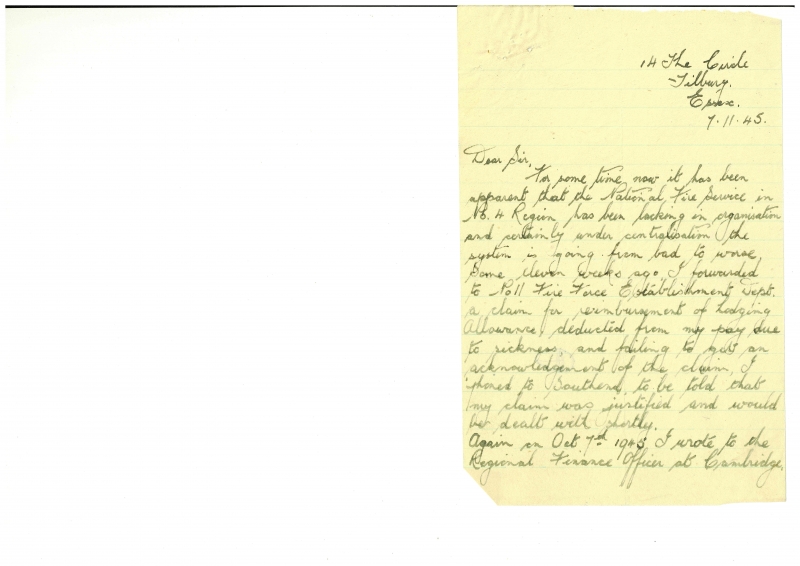 14 The Circle
Tilbury.
Essex.
7.11.45.
Dear Sir,
For some time now it has been
apparent that the National Fire Service in
No. 4 Region has been lacking in organisation
and certainly under centralisation the
system is going from bad to worse.
Some eleven weeks ago, I forwarded
to No 11 Fire Force Establishment Dept.
a claim for reimbursement of Lodging
Allowance, deducted from my pay due
to sickness, and failing to get an
acknowledgement of the claim, I
'phoned to Southend, to be told that
my claim was justified and would
be dealt with shortly.
Again on Oct 7th 1945 I wrote to the
Regional Finance Officer at Cambridge,